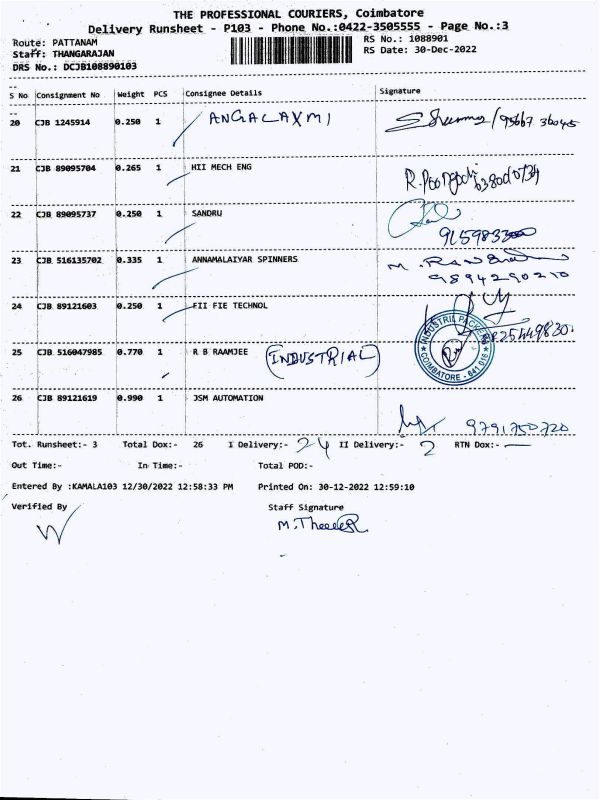 THE PROFESSIONAL COURIERS, Coimbatore
Delivery Runsheet - P103 - Phone No.:0422-3505555 - Page No.:3
Route: PATTANAM RS No.: 1088901
Staff: THANGARAJAN RS Date: 30-Dec-2022
DRS No.: DCJB108890103
S No Consignment No Weight PCS Consignee Details Signature
20 CJB 1245914 0.250 1 ANGALAXMI
21 CJB 89095704 0.265 1 HII MECH ENG
22 CJB 89095737 0.250 1 SANDRU
23 CJB 516135702 0.335 1 ANNAMALAIYAR SPINNERS
9894290210
24 CJB 89121603 0.250 1 FII FIE TECHNOL
25 CJB 516047985 0.770 1 R B RAAMJEE (INDUSTRIAL)
COIMBATORE - 641 016
26 CJB 89121619 0.990 1 JSM AUTOMATION
9791750720
Tot. Runsheet:- 3 Total Dox:- 26 I Delivery:- 24 II Delivery:- 2 RTN Dox:- —
Out Time:- In Time:- Total POD:-
Entered By :KAMALA103 12/30/2022 12:58:33 PM Printed On: 30-12-2022 12:59:10
Verified By Staff Signature